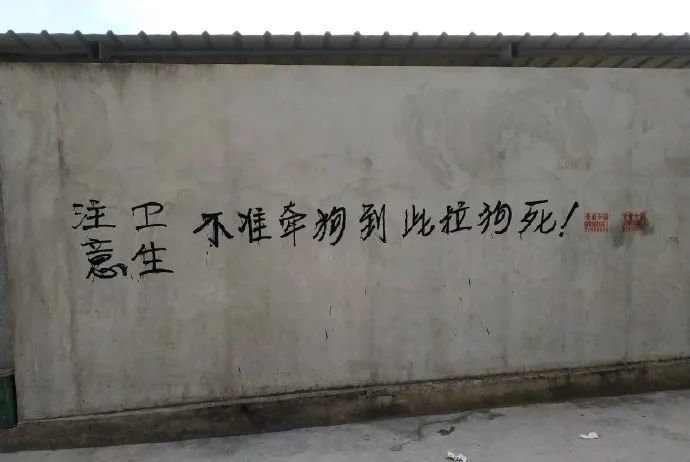 注意
卫生
不准牵狗到此拉狗死!